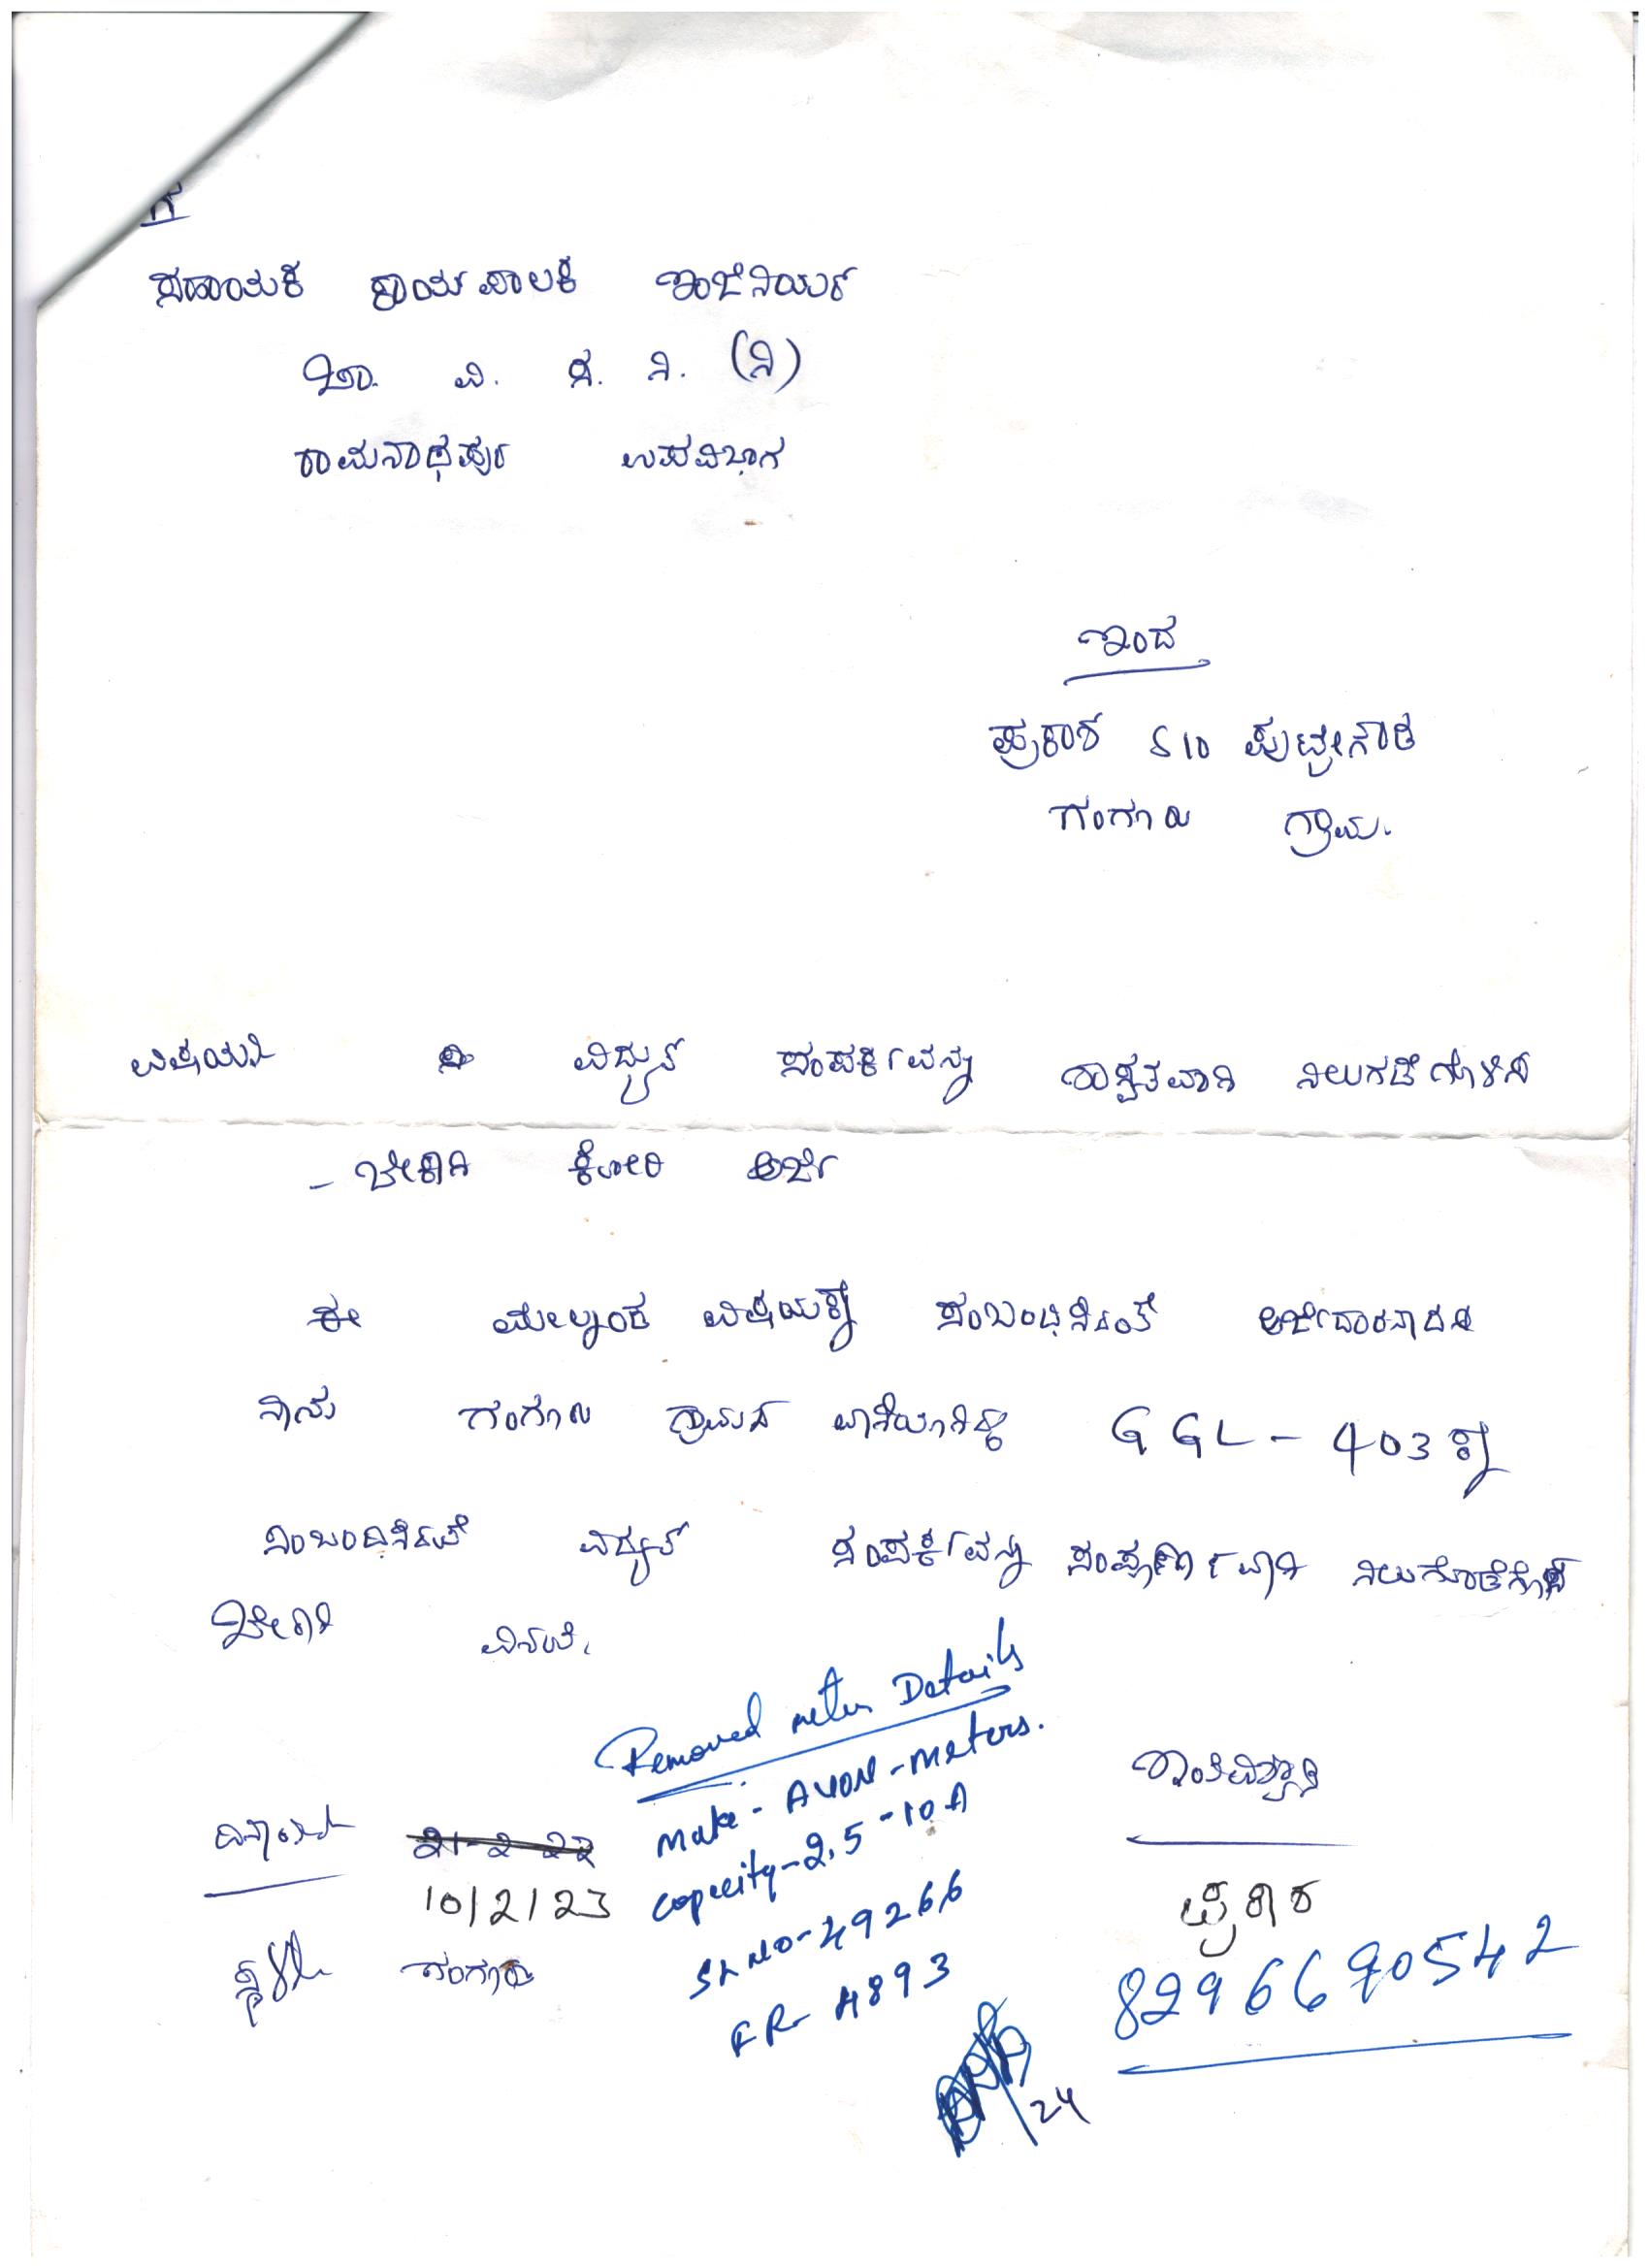 ಗೆ
ಸಹಾಯಕ ಕಾರ್ಯಪಾಲಕ ಇಂಜಿನಿಯರ್
ಚಾ. ವಿ. ಸ. ನಿ. (ನಿ)
ರಾಮನಾಥಪುರ ಉಪವಿಭಾಗ
ಇಂದ
ಪ್ರಕಾಶ S/O ಪುಟ್ಟೇಗೌಡ
ಗಂಗೂರು ಗ್ರಾಮ.
ವಿಷಯ: ವಿದ್ಯುತ್ ಸಂಪರ್ಕವನ್ನು ಶಾಶ್ವತವಾಗಿ ನಿಲುಗಡೆಗೊಳಿಸ
- ಬೇಕಾಗಿ ಕೋರಿ ಅರ್ಜಿ
ಈ ಮೇಲ್ಕಂಡ ವಿಷಯಕ್ಕೆ ಸಂಬಂಧಿಸಿದಂತೆ ಅರ್ಜಿದಾರನಾದ
ನಾನು ಗಂಗೂರು ಗ್ರಾಮದ ವಾಸಿಯಾಗಿದ್ದು GGL - 403 ಕ್ಕೆ
ಸಂಬಂಧಿಸಿದಂತೆ ವಿದ್ಯುತ್ ಸಂಪರ್ಕವನ್ನು ಸಂಪೂರ್ಣವಾಗಿ
ಬೇಕಾಗಿ ವಿನಂತಿ.
Removed meter Details
Make - AVON - meters.
capacity - 2.5 - 10 A
SL NO - 49266
FR - 4893
ದಿನಾಂಕ 21-2-22
10/2/23
ಸ್ಥಳ ಗಂಗೂರು
ಇಂತಿವಿಶ್ವಾಸಿ
ಪ್ರಕಾಶ
8296690542
24